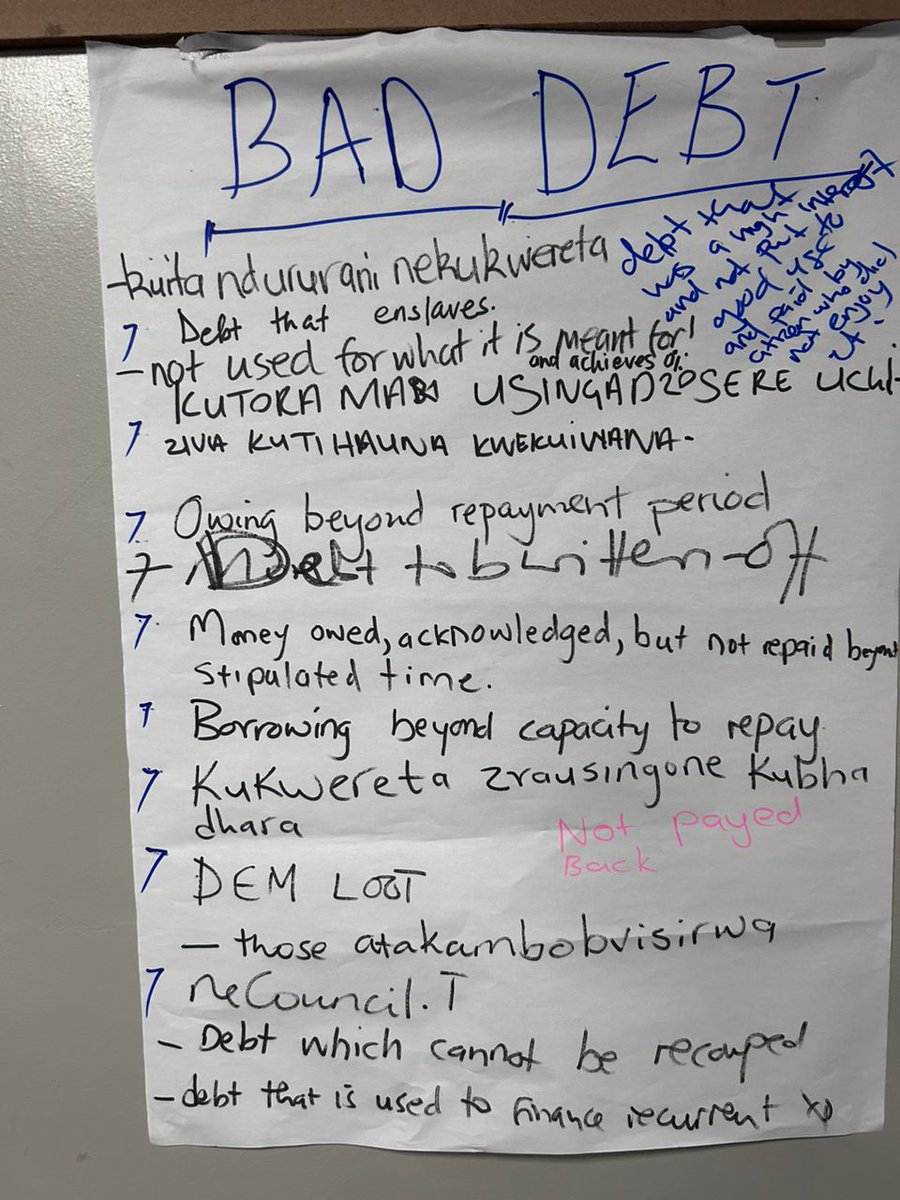 BAD DEBT
-kuita ndururani nekukwereta
debt that
has a high interest
and not put to
good use
and paid by
citizen who did
not enjoy
it!
7 Debt that enslaves.
- not used for what it is meant for!
and achieves
KUTORA USINGADZOSERE UCHI-
7 ZIVA KUTI HAUNA KWEKUIWANA-
7 Owing beyond repayment period
7 Debt to b written-off
7 Money owed, acknowledged, but not repaid beyond
stipulated time.
7 Borrowing beyond capacity to repay
7 Kukwereta zvausingone kubha
dhara
Not payed
Back
7 DEM LOOT
- those atakambobvisirwa
7 neCouncil.T
- Debt which cannot be recouped
- debt that is used to finance recurrent